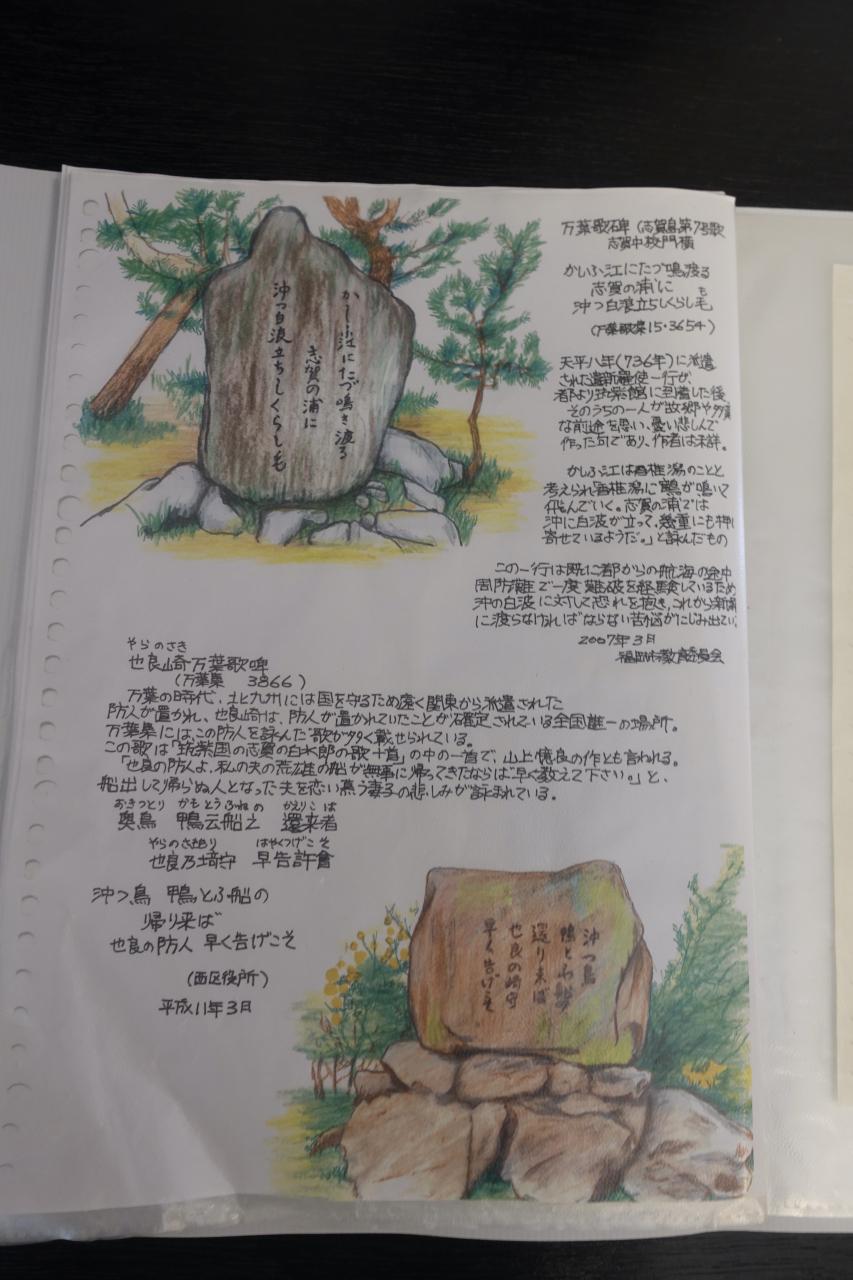 かしふ江にたづ鳴き渡る
志賀の浦に
沖つ白浪立ちしくらしも
万葉歌碑 (志賀島第7号歌
志賀中校門横
かしふ江にたづ鳴渡る
志賀の浦に
も
沖つ白浪立ちしくらし毛
(万葉歌集15・3654)
天平八年(736年)に派遣
された遣新羅使一行が、
都より筑紫館に到着した後
そのうちの一人が故郷や
な前途を思い、憂い悲しんで
作った句であり、作者は未詳。
かしふ江は香椎潟のことと
考えられ「香椎潟に鶴が鳴いて
飛んでいく。志賀の浦では
沖に白波が立って、幾重にも押し
寄せているようだ。」と詠んだもの
この一行は既に都からの航海の途中
周防灘で一度難破を経験しているため
沖の白波に対して恐れを抱き、これから新羅
に渡らなければならない苦悩がにじみ出てい
2007年3月
福岡市教育委員会
やらのさき
也良崎万葉歌碑
(万葉集 3866)
万葉の時代、北九州には国を守るため遠く関東から派遣された
防人が置かれ、也良崎は、防人が置かれていたことが確定されている全国雄一の場所。
万葉集には、この防人を詠んだ歌が多く載せられている。
この歌は「筑紫国の志賀の白水郎の歌十首」の中の一首で、山上憶良の作とも言われる。
「也良の防人よ、私の夫の荒雄の船が無事に帰ってきたならば早く教えて下さい。」と、
船出して帰らぬ人となった夫を恋い慕う妻子の悲しみが詠まれている。
おきつとり かもとうふねの かえりこば
奥鳥 鴨云船之 還来者
やらのさきもり はやくつげこそ
也良乃埼守 早告許曾
沖つ鳥 鴨とふ船の
帰り来ば
也良の防人 早く告げこそ
(西区役所)
平成11年3月
沖つ鳥
鴨とふ船の
還り来ば
也良の崎守
早く告げこそ